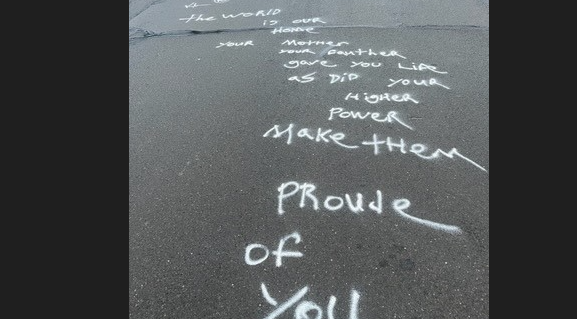 the WORLD
is our
Home
your Mother
your Eanther
gave you Life
as DiD your
Higher
Power
Make tHem
PRoude
of
You